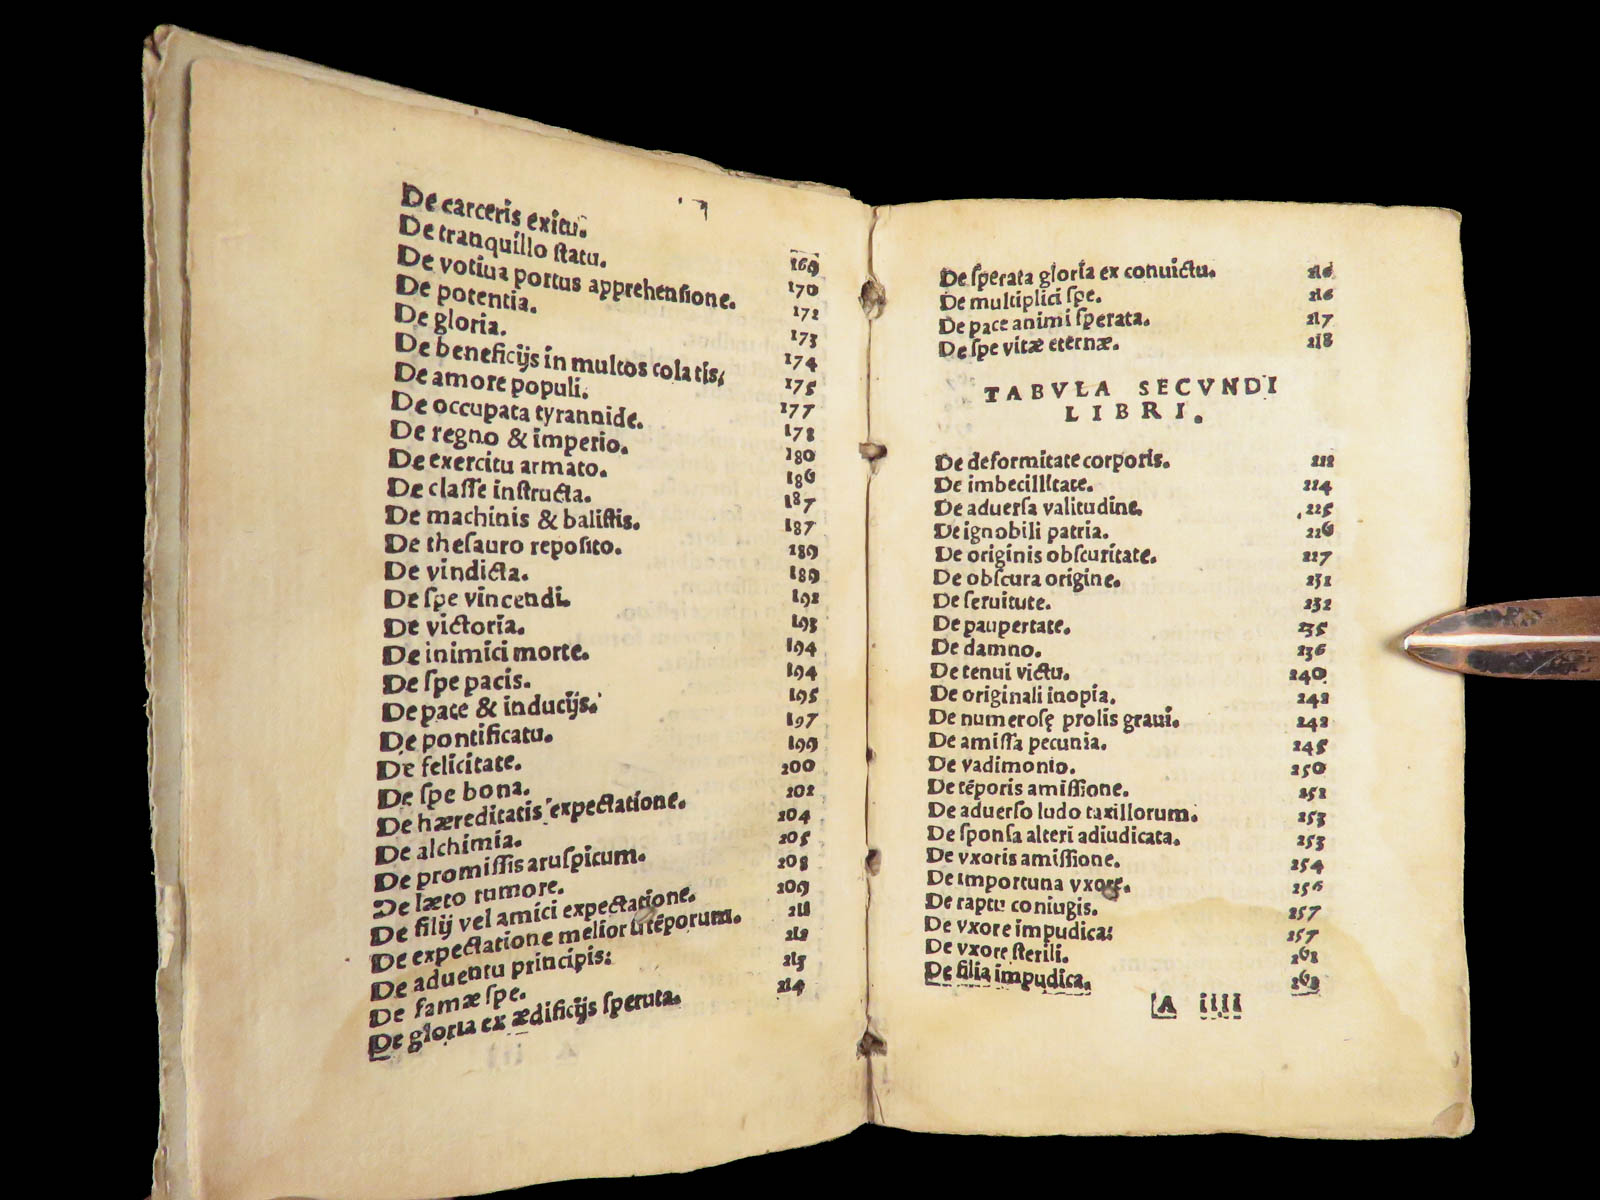 De carceris exitu. 169
De tranquillo statu. 170
De votiua portus apprehensione. 172
De potentia. 173
De gloria. 174
De beneficijs in multos colatis; 175
De amore populi. 177
De occupata tyrannide. 178
De regno & imperio. 180
De exercitu armato. 186
De classe instructa. 187
De machinis & balistis. 187
De thesauro reposito. 189
De vindicta. 189
De spe vincendi. 192
De victoria. 193
De inimici morte. 194
De spe pacis. 194
De pace & inducijs. 195
De pontificatu. 197
De felicitate. 199
De spe bona. 200
De hæreditatis expectatione. 202
De alchimia. 204
De promissis aruspicum. 205
De læto rumore. 208
De filij vel amici expectatione. 209
De expectatione meliorũ tẽporum. 211
De aduentu principis: 212
De famæ spe. 213
De gloria ex ædificijs speruta. 214
De sperata gloria ex conuictu. 216
De multiplici spe. 216
De pace animi sperata. 217
De spe vitæ eternæ. 218
TABVLA SECVNDI
LIBRI.
De deformitate corporis. 222
De imbecillitate. 224
De aduersa valitudine. 225
De ignobili patria. 226
De originis obscuritate. 227
De obscura origine. 231
De seruitute. 232
De paupertate. 235
De damno. 236
De tenui victu. 240
De originali inopia. 242
De numerosę prolis graui. 242
De amissa pecunia. 245
De vadimonio. 250
De tẽporis amissione. 252
De aduerso ludo taxillorum. 253
De sponsa alteri adiudicata. 253
De vxoris amissione. 254
De importuna vxore. 256
De raptu coniugis. 257
De vxore impudica: 257
De vxore sterili. 262
De filia impudica. 263
A iiii